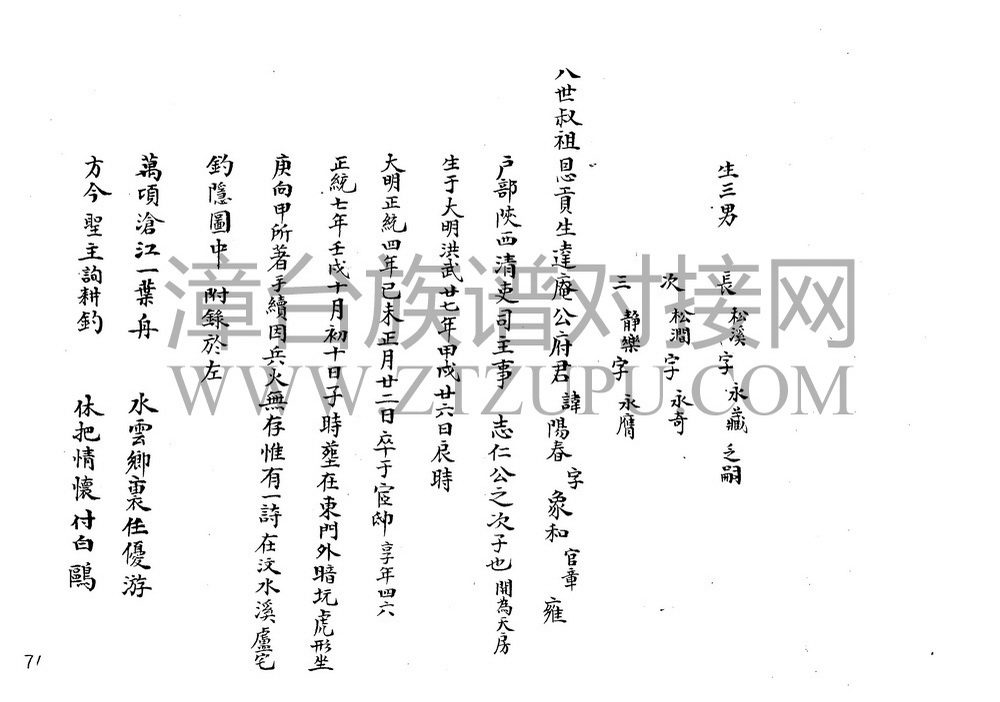 生三男
長 松溪 字 永藏 乏嗣
次 松澗 字 永奇
三 静樂 字 永膺
八世叔祖恩貢生達庵公府君 諱 陽春 字 象和 官章 雍
户部陝西清吏司主事 志仁公之次子也 開為天房
生于大明洪武廿七年甲戌廿六日辰時
大明正統四年己未正月廿二日卒于宦邸 享年四六
正統七年壬戌十月初十日子時塟在東門外暗坑虎形坐
庚向甲所著手續因兵火無存惟有一詩在汶水溪盧宅
釣隱圖中 附錄於左
萬頃滄江一葉舟 水雲鄉裏任優游
方今聖主詢耕釣 休把情懷付白鷗
71
漳台族谱对接网
WWW.ZTZUPU.COM